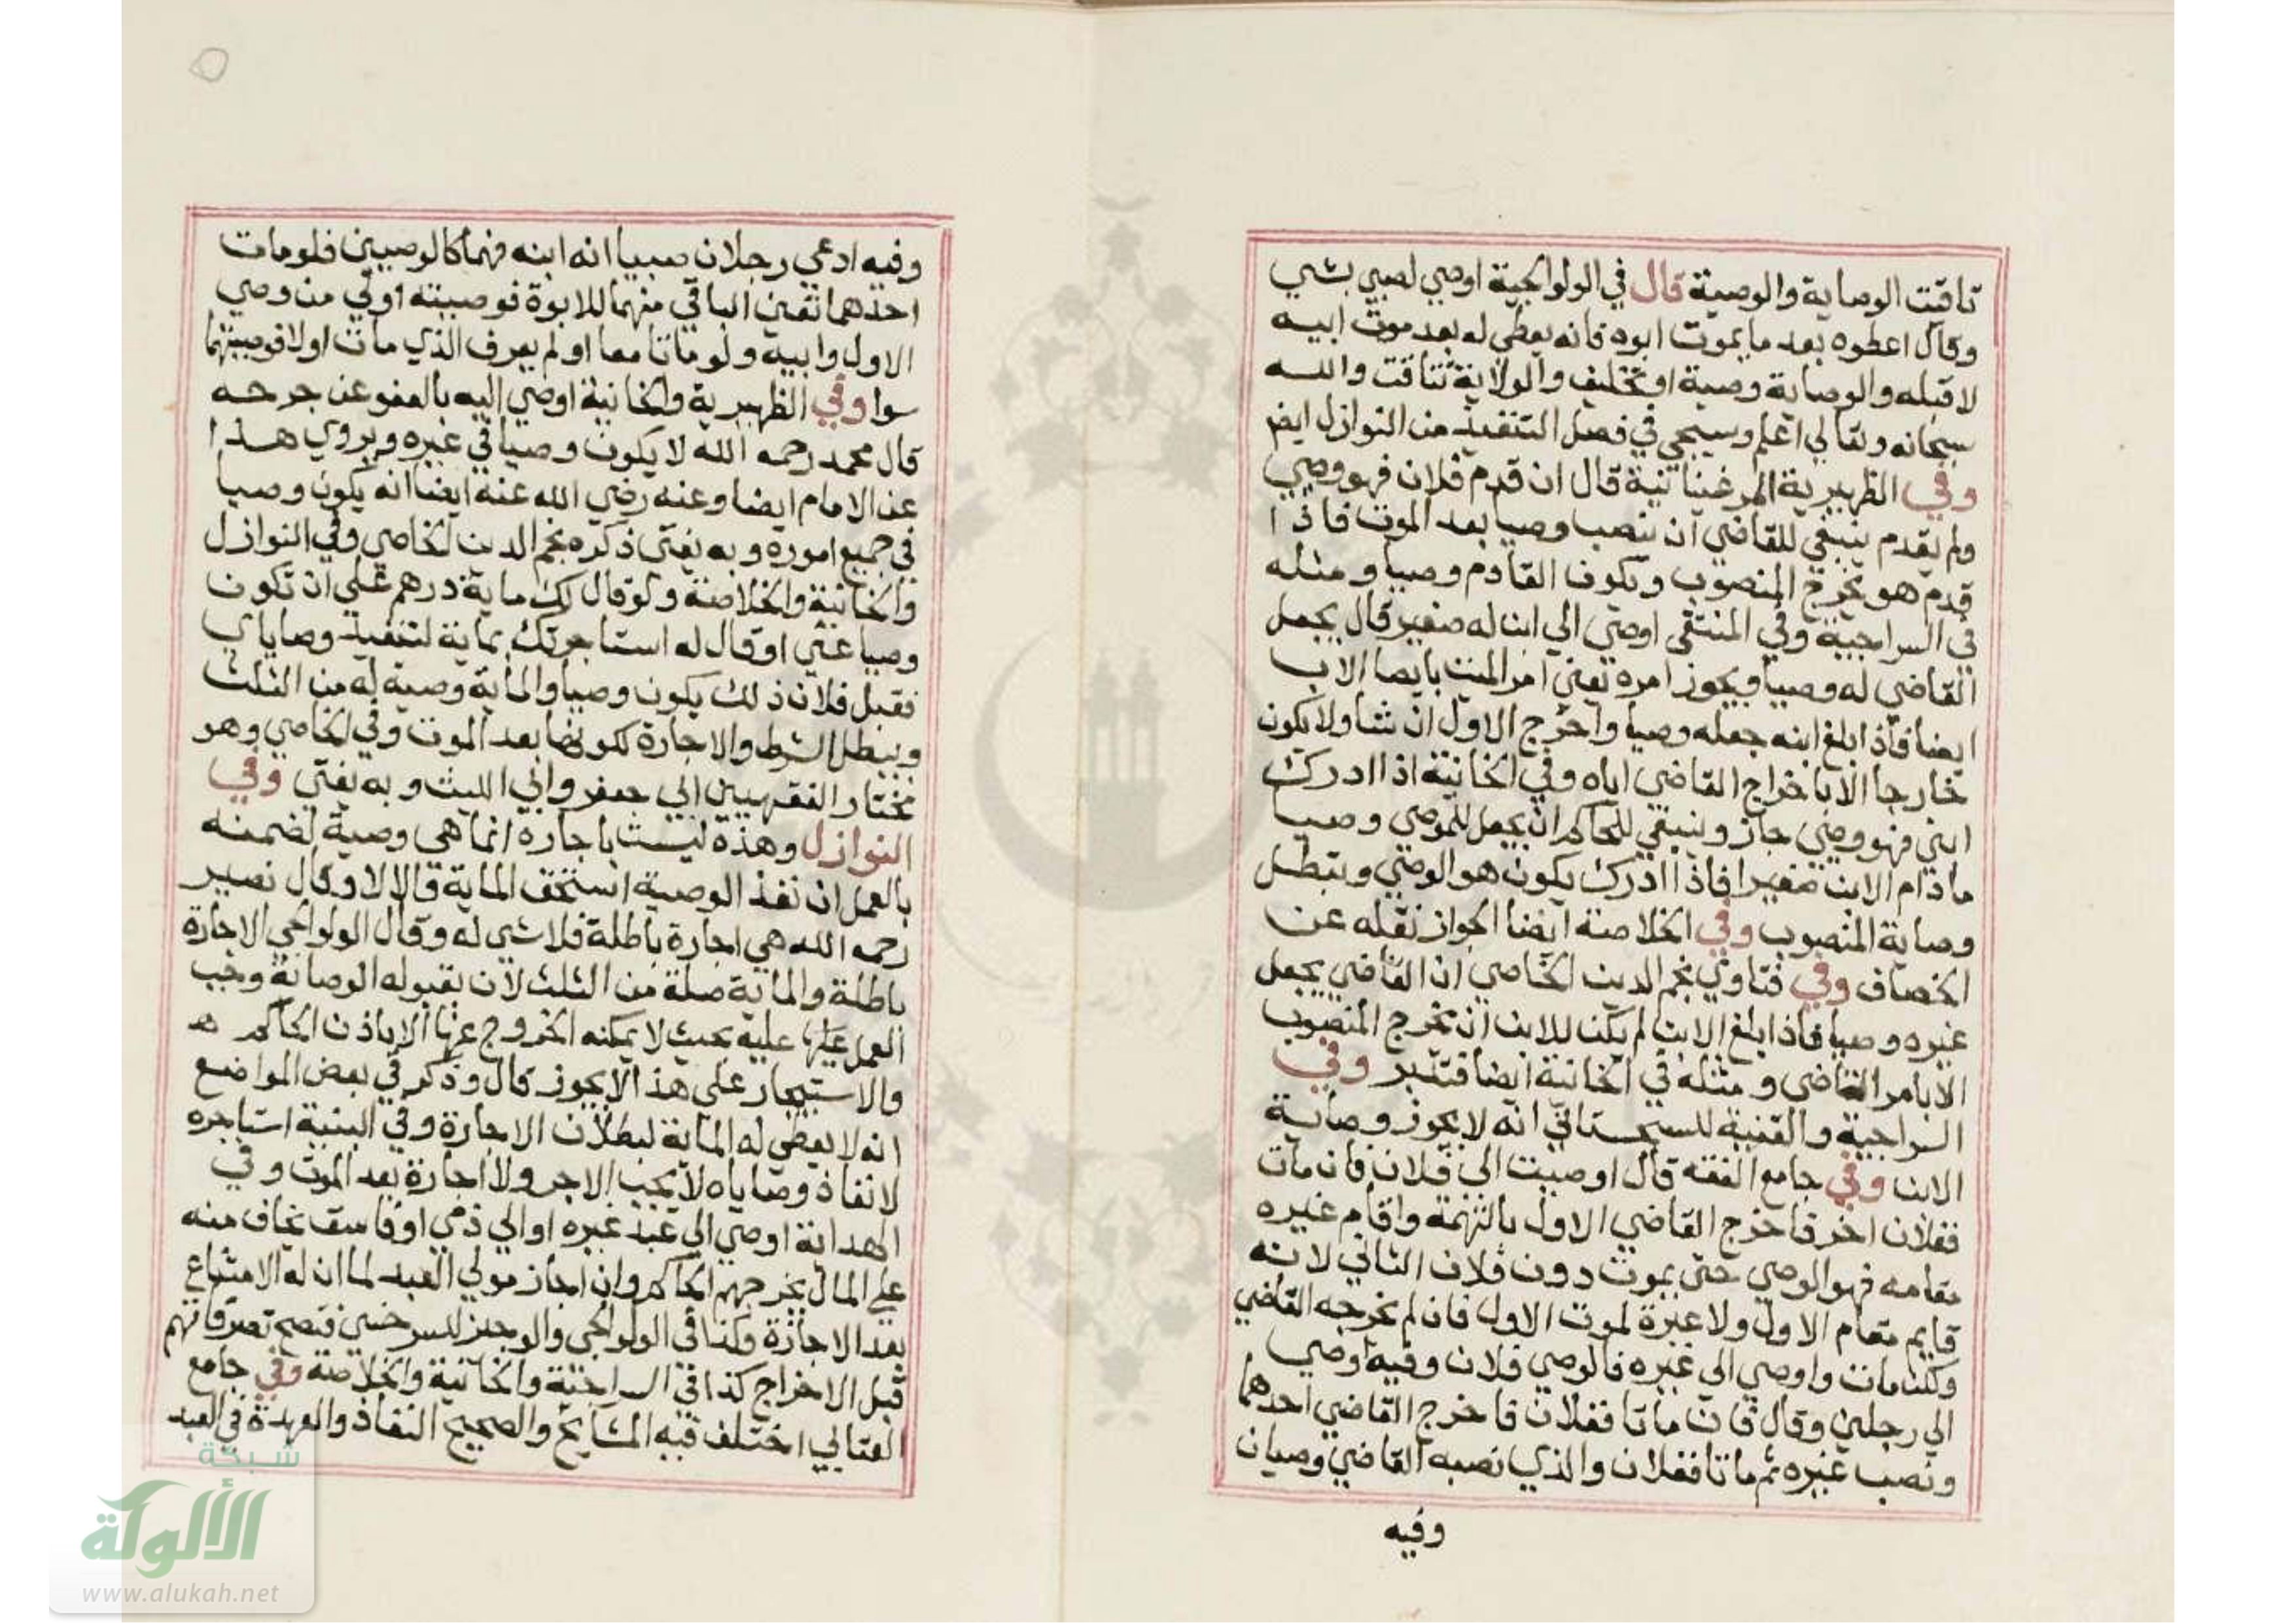 تاقت الوصاية والوصية قال في الولوالجية اوصي لصبي بشي
وقال اعطوه بعد ما يموت ابوه فانه يعطي له بعد موت ابيه
لا قبله والوصاية وصية او تخليف والولاية تتاقت والله
سبحانه وتعالي اعلم وسيجي في فصل التنفيذ من النوازل ايض
وفي الظهيرية المرغينانية قال ان قدم فلان فهو وصي
ولم يقدم ينبغي للقاضي ان ينصب وصيا بعد الموت فاذا
قدم هو يخرج المنصوب ويكون القادم وصيا ومثله
في السراجية وفي المنتقي اوصي الي ابن له صغير قال يجعل
القاضي له وصيا ويجوز امره يعني امر الميت بايصا الاب
ايضا فاذا بلغ ابنه جعله وصيا واخرج الاول ان شا ولا يكون
خارجا الا باخراج القاضي اياه وفي الخانية اذا ادرك
ابني فهو وصي جاز وينبغي للحاكم ان يجعل للموصي وصيا
ما دام الابن صغيرا فاذا ادرك يكون هو الوصي وتبطل
وصاية المنصوب وفي الخلاصة ايضا الجواز نقله عن
الخصاف وفي فتاوي نجم الدين الخاصي ان القاضي يجعل
غيره وصيا فاذا بلغ الابن لم يكن للابن ان يخرج المنصوب
الا بامر القاضي ومثله في الخانية ايضا فتدبر وفي
السراجية والقنية للسجستاني انه لا يجوز وصاية
الابن وفي جامع الفقه قال اوصيت الي فلان فان مات
ففلان اخر فاخرج القاضي الاول بالتهمة واقام غيره
مقامه فهو الوصي حتي يموت دون فلان الثاني لانه
قايم مقام الاول ولا عبرة لموت الاول فان لم يخرجه القاضي
ولكن مات واوصي الي غيره فالوصي فلان وفيه اوصي
الي رجلين وقال فان ماتا ففلان فاخرج القاضي احدهما
ونصب غيره ثم ماتا ففلان والذي نصبه القاضي وصيان
وفيه
وفيه ادعي رجلان صبيا انه ابنه فهما كالوصيين فلو مات
احدهما تعين الباقي منهما للابوة فوصيته اولي من وصي
الاول وابيه ولو ماتا معا او لم يعرف الذي مات اولا فوصيتهما
سوا وفي الظهيرية والخانية اوصي اليه بالعفو عن جرحه
قال محمد رحمه الله لا يكون وصيا في غيره ويروي هذا
عن الامام ايضا وعنه رضي الله عنه ايضا انه يكون وصيا
في جميع اموره وبه يفتي ذكره نجم الدين الخاصي وفي النوازل
والخانية والخلاصة ولو قال لك ماية درهم علي ان تكون
وصيا عني او قال له استاجرتك بماية لتنفيذ وصاياي
فقبل فلان ذلك يكون وصيا والماية وصية له من الثلث
ويبطل الشرط والاجارة لكونها بعد الموت وفي الخاصي وهو
مختار الفقهيين ابي جعفر وابي الليث وبه يفتي وفي
النوازل وهذه ليست باجارة انما هي وصية لضمنه
بالعمل ان نفذ الوصية استحق الماية والا لا وقال نصير
رحمه الله هي اجارة باطلة فلا شي له وقال الولوالجي الاجارة
باطلة والماية صلة من الثلث لان بقبوله الوصاية وجب
العمل عليها عليه بحيث لا يمكنه الخروج عنها الا باذن الحاكم هـ
والاستيجار علي هذا لا يجوز قال وذكر في بعض المواضع
انه لا يعطي له الماية لبطلان الاجارة وفي البنية استاجره
لانفاذ وصاياه لا يجب الاجر ولا اجارة بعد الموت وفي
الهداية اوصي الي عبد غيره او الي ذمي او فاسق يخاف منه
علي المال يخرجهم الحاكم وان اجاز مولي العبد لما ان له الامتناع
بعد الاجازة وكذا في الولوالجي والوجيز للسرخسي فتصح تصرفاتهم
قبل الاخراج كذا في السراجية والخانية والخلاصة وفي جامع
العتابي اختلف فيه المشايخ والصحيح النفاذ والعهدة في العبد
شبكة
الألوكة
www.alukah.net